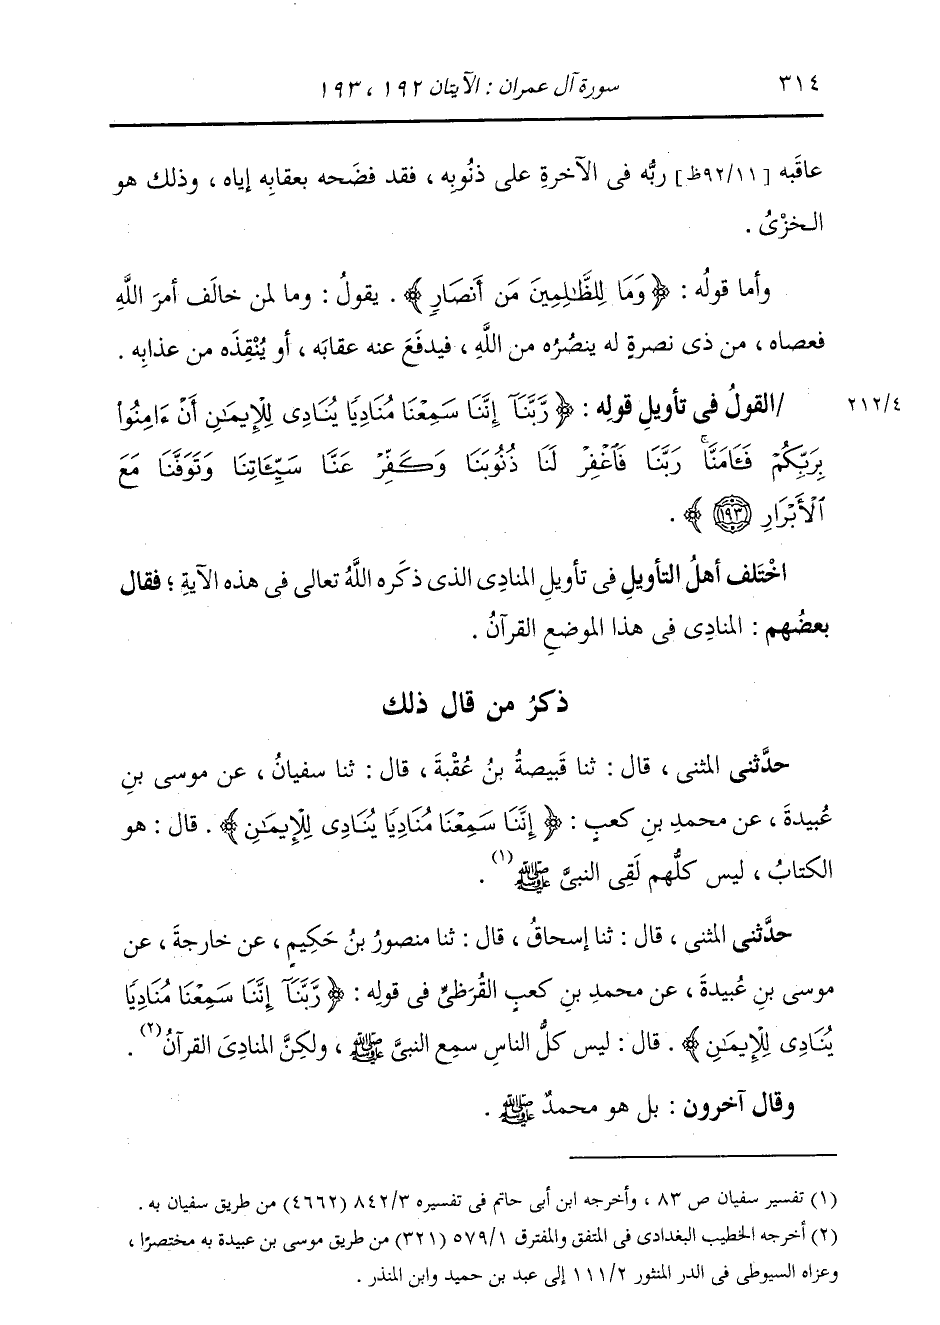 ٣١٤ سورة آل عمران : الآيتان ١٩٢ ، ١٩٣
عاقَبه [٩٢/١١ظ] ربُّه فى الآخرةِ على ذنُوبِه ، فقد فضَحه بعقابِه إياه ، وذلك هو
الخزْىُ .
وأما قولُه : ﴿ وَمَا لِلظَّٰلِمِينَ مَن أَنصَارٍ ﴾ . يقولُ : وما لمن خالَف أمرَ اللَّهِ
فعصاه ، من ذى نصرةٍ له ينصُرُه من اللَّهِ ، فيدفَعَ عنه عقابَه ، أو يُنْقِذَه من عذابِه .
٢١٢/٤ /القولُ فى تأويلِ قولِه : ﴿ رَّبَّنَآ إِنَّنَا سَمِعْنَا مُنَادِيًا يُنَادِى لِلْإِيمَٰنِ أَنْ ءَامِنُوا۟
بِرَبِّكُمْ فَـَٔامَنَّا ۚ رَبَّنَا فَٱغْفِرْ لَنَا ذُنُوبَنَا وَكَفِّرْ عَنَّا سَيِّـَٔاتِنَا وَتَوَفَّنَا مَعَ
ٱلْأَبْرَارِ ١٩٣ ﴾ .
اخْتَلف أهلُ التأويلِ فى تأويلِ المنادِى الذى ذكَره اللَّهُ تعالى فى هذه الآيةِ ؛ فقال
بعضُهم : المنادِى فى هذا الموضعِ القرآنُ .
ذكرُ من قال ذلك
حدَّثنى المثنى ، قال : ثنا قَبيصةُ بنُ عُقْبةَ ، قال : ثنا سفيانُ ، عن موسى بنِ
عُبيدةَ ، عن محمدِ بنِ كعبٍ : ﴿ إِنَّنَا سَمِعْنَا مُنَادِيًا يُنَادِى لِلْإِيمَٰنِ ﴾ . قال : هو
الكتابُ ، ليس كلُّهم لَقِى النبىَّ ﷺ (١) .
حدَّثنى المثنى ، قال : ثنا إسحاقُ ، قال : ثنا منصورُ بنُ حَكِيمٍ ، عن خارجةَ ، عن
موسى بنِ عُبيدةَ ، عن محمدِ بنِ كعبٍ القُرَظىِّ فى قولِه : ﴿ رَّبَّنَآ إِنَّنَا سَمِعْنَا مُنَادِيًا
يُنَادِى لِلْإِيمَٰنِ ﴾ . قال : ليس كلُّ الناسِ سمِع النبىَّ ﷺ ، ولكنَّ المنادِىَ القرآنُ (٢) .
وقال آخرون : بل هو محمدٌ ﷺ .
(١) تفسير سفيان ص ٨٣ ، وأخرجه ابن أبى حاتم فى تفسيره ٨٤٢/٣ (٤٦٦٢) من طريق سفيان به .
(٢) أخرجه الخطيب البغدادى فى المتفق والمفترق ٥٧٩/١ (٣٢١) من طريق موسى بن عبيدة به مختصرًا ،
وعزاه السيوطى فى الدر المنثور ١١١/٢ إلى عبد بن حميد وابن المنذر .